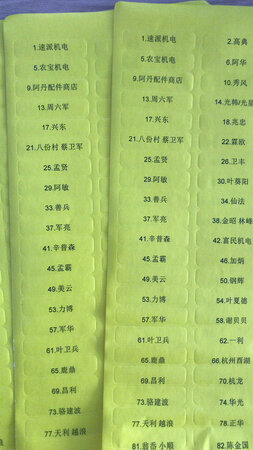 1.速派机电
5.农宝机电
9.阿丹配件商店
13.周六军
17.兴东
21.八份村 蔡卫军
25.孟贤
29.阿敏
33.善兵
37.军亮
41.辛普森
45.孟霸
49.美云
53.力博
57.军华
61.叶卫兵
65.鹿鼎
69.昌利
73.骆建波
77.天利 越浪
1.速派机电 2.高典
5.农宝机电 6.阿华
9.阿丹配件商店 10.秀风
13.周六军 14.光韩/光星
17.兴东 18.兆忠
21.八份村 蔡卫军 22.霖歆
25.孟贤 26.卫丰
29.阿敏 30.叶葵阳
33.善兵 34.仙法
37.军亮 38.金昭 林峰
41.辛普森 42.富民机电
45.孟霸 46.加炳
49.美云 50.钢辉
53.力博 54.叶夏德
57.军华 58.谢贝贝
61.叶卫兵 62.一利
65.鹿鼎 66.杭州西湖
69.昌利 70.杭龙
73.骆建波 74.华光
77.天利 越浪 78.正华
81.翁岙 小顺 82.陈金国